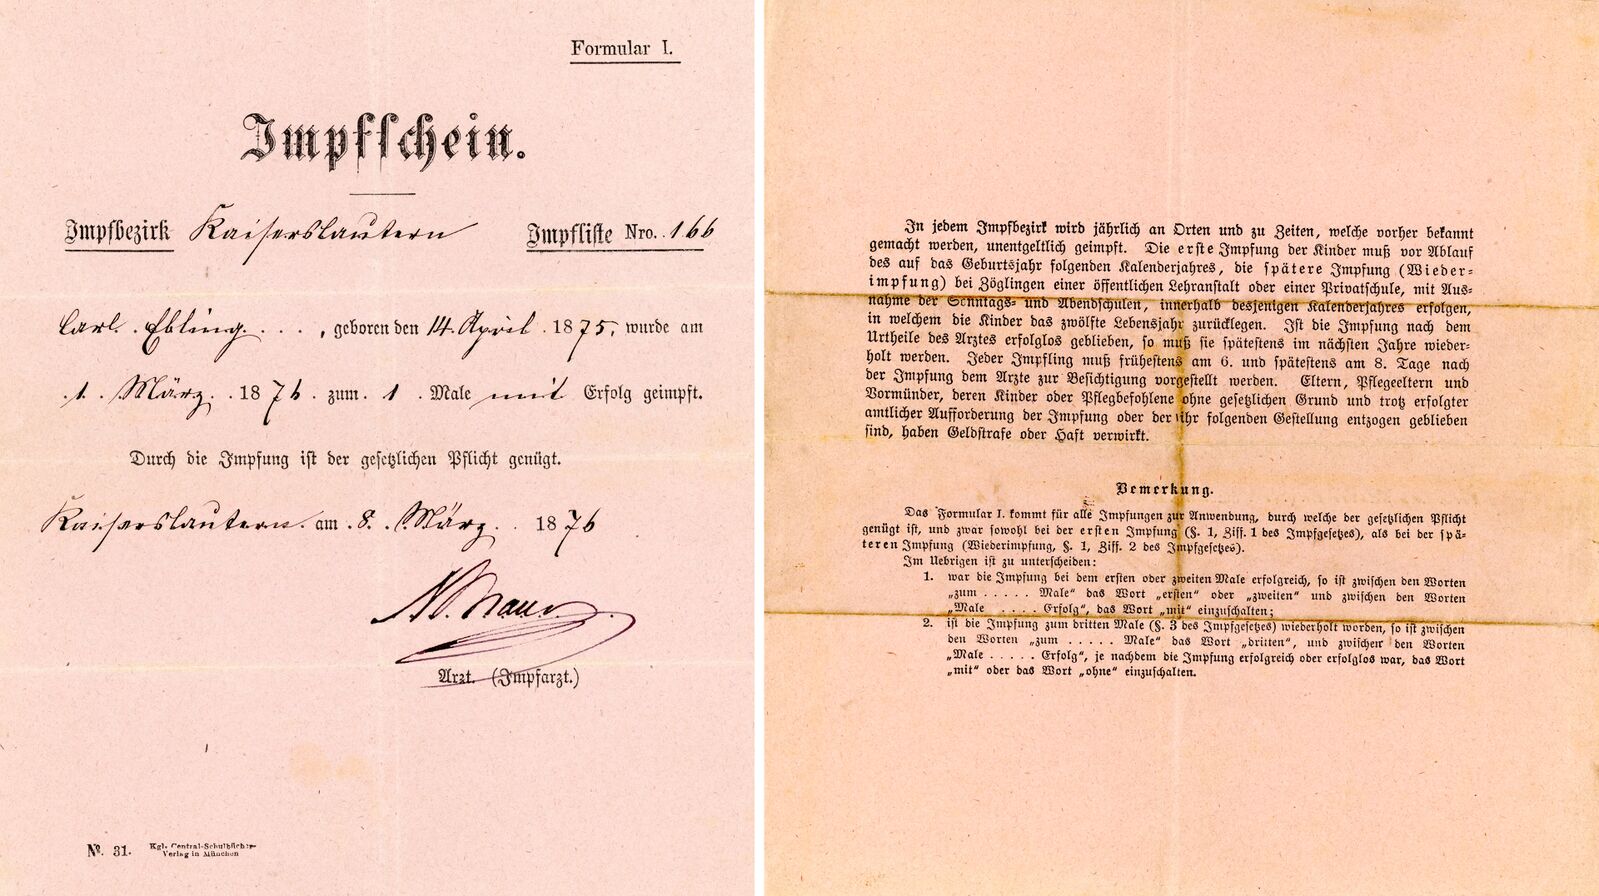 Formular I.
Impfschein.
Impfbezirk Kaiserslautern Impfliste Nro. 166
Carl Ebling , geboren den 14. April 1875, wurde am
1. März 1876 zum 1 Male mit Erfolg geimpft.
Durch die Impfung ist der gesetzlichen Pflicht genügt.
Kaiserslautern am 8. März 1876
Arzt. (Impfarzt.)
No. 31. Kgl. Central-Schulbücher-
Verlag in München
In jedem Impfbezirk wird jährlich an Orten und zu Zeiten, welche vorher bekannt
gemacht werden, unentgeltlich geimpft. Die erste Impfung der Kinder muß vor Ablauf
des auf das Geburtsjahr folgenden Kalenderjahres, die spätere Impfung (Wieder-
impfung) bei Zöglingen einer öffentlichen Lehranstalt oder einer Privatschule, mit Aus-
nahme der Sonntags- und Abendschulen, innerhalb desjenigen Kalenderjahres erfolgen,
in welchem die Kinder das zwölfte Lebensjahr zurücklegen. Ist die Impfung nach dem
Urtheile des Arztes erfolglos geblieben, so muß sie spätestens im nächsten Jahre wieder-
holt werden. Jeder Impfling muß frühestens am 6. und spätestens am 8. Tage nach
der Impfung dem Arzte zur Besichtigung vorgestellt werden. Eltern, Pflegeeltern und
Vormünder, deren Kinder oder Pflegbefohlene ohne gesetzlichen Grund und trotz erfolgter
amtlicher Aufforderung der Impfung oder der ihr folgenden Gestellung entzogen geblieben
sind, haben Geldstrafe oder Haft verwirkt.
Bemerkung.
Das Formular I. kommt für alle Impfungen zur Anwendung, durch welche der gesetzlichen Pflicht
genügt ist, und zwar sowohl bei der ersten Impfung (§. 1, Ziff. 1 des Impfgesetzes), als bei der spä-
teren Impfung (Wiederimpfung, §. 1, Ziff. 2 des Impfgesetzes).
Im Uebrigen ist zu unterscheiden:
1. war die Impfung bei dem ersten oder zweiten Male erfolgreich, so ist zwischen den Worten
„zum . . . . . Male" das Wort „ersten" oder „zweiten" und zwischen den Worten
„Male . . . . Erfolg", das Wort „mit" einzuschalten;
2. ist die Impfung zum dritten Male (§. 3 des Impfgesetzes) wiederholt worden, so ist zwischen
den Worten „zum . . . . . Male" das Wort „dritten", und zwischen den Worten
„Male . . . . . Erfolg", je nachdem die Impfung erfolgreich oder erfolglos war, das Wort
„mit" oder das Wort „ohne" einzuschalten.